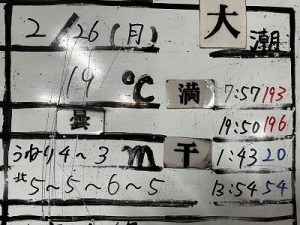 2/26(月) 大潮
14℃ 満 7:57 193
曇 19:50 196
うねり4～3m 干 1:43 20
北5～5～6～5 13:54 54